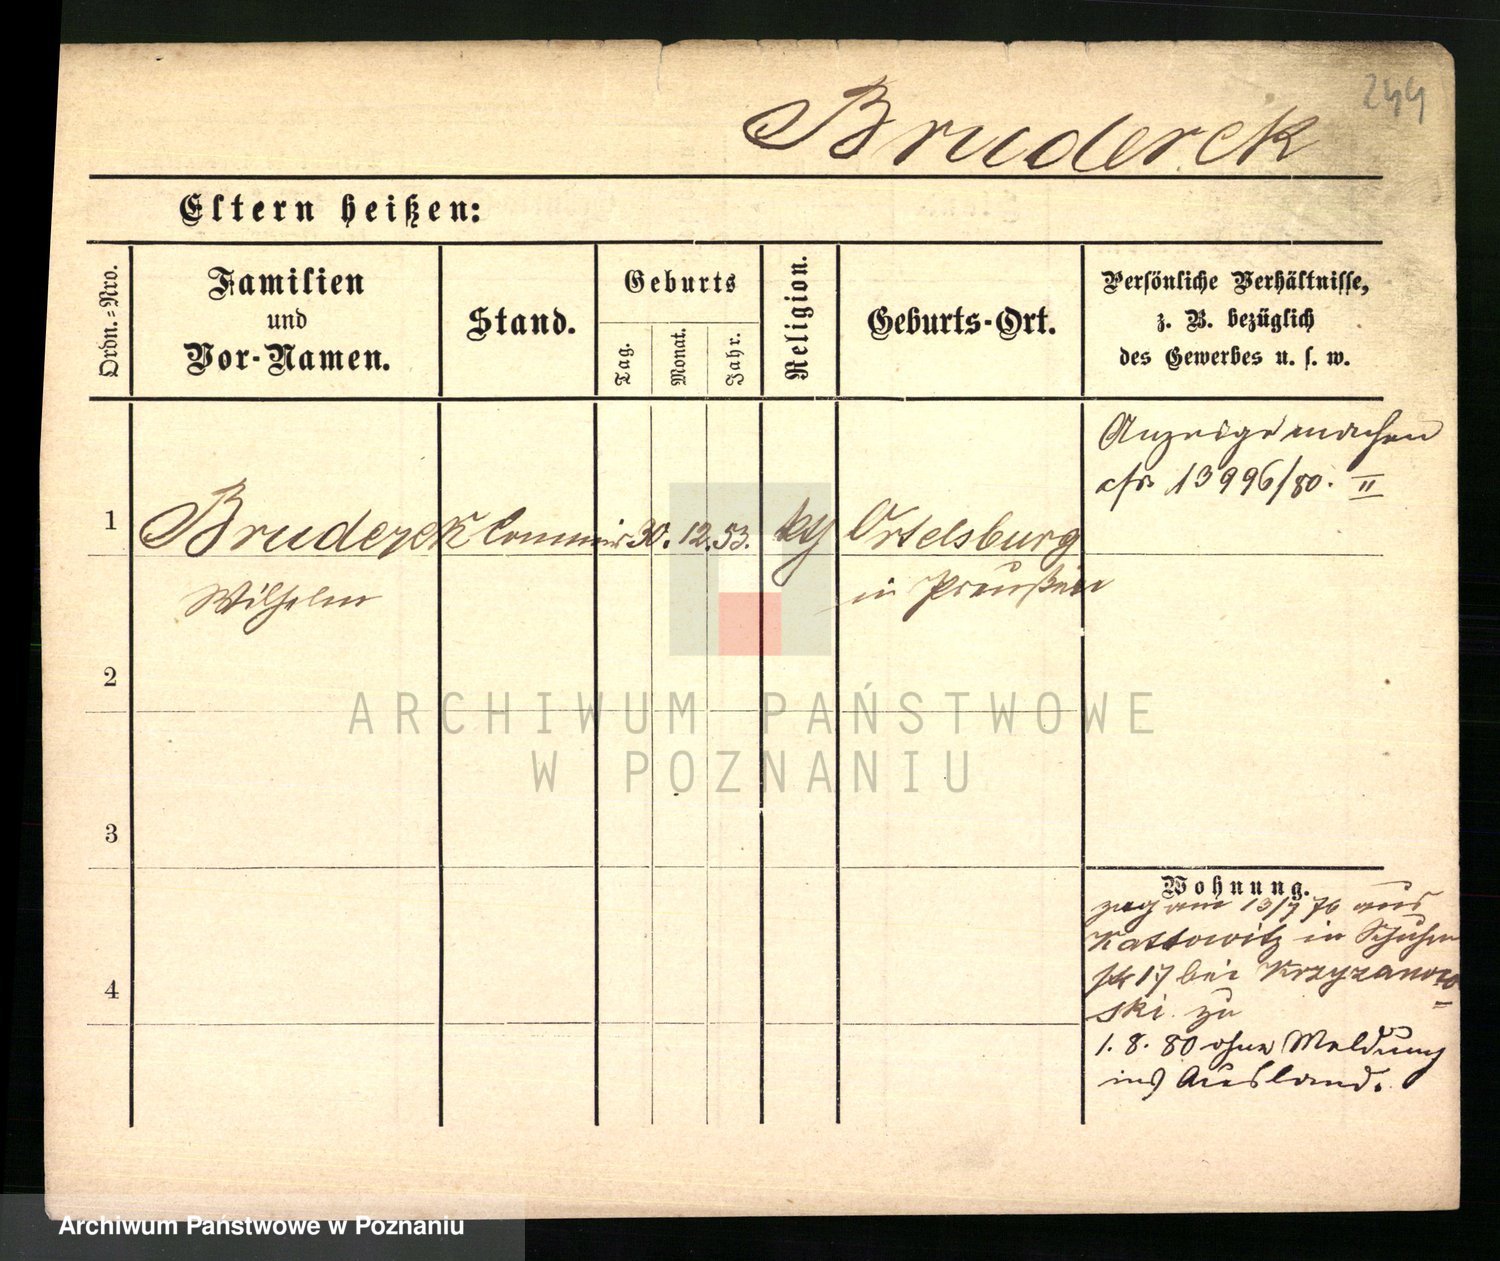 244
Bruderek
Eltern heißen:
Ordn.-Nro.
Familien
und
Vor-Namen.
Stand.
Geburts
Tag.
Monat.
Jahr.
Religion.
Geburts-Ort.
Persönliche Verhältnisse,
z. B. bezüglich
des Gewerbes u. s. w.
Anzeige machen
cfr 13996/80. II
1 Bruderek Commis 30. 12. 53. Ortelsburg
Wilhelm in Preußen
2
3
4
Wohnung.
zog am 13/7 aus
Kattowitz in Schuhm
str 17 bei Krzyzanow=
ski zu
1. 8. 80 ohne Meldung
ins Ausland.
ARCHIWUM PAŃSTWOWE
W POZNANIU
Archiwum Państwowe w Poznaniu